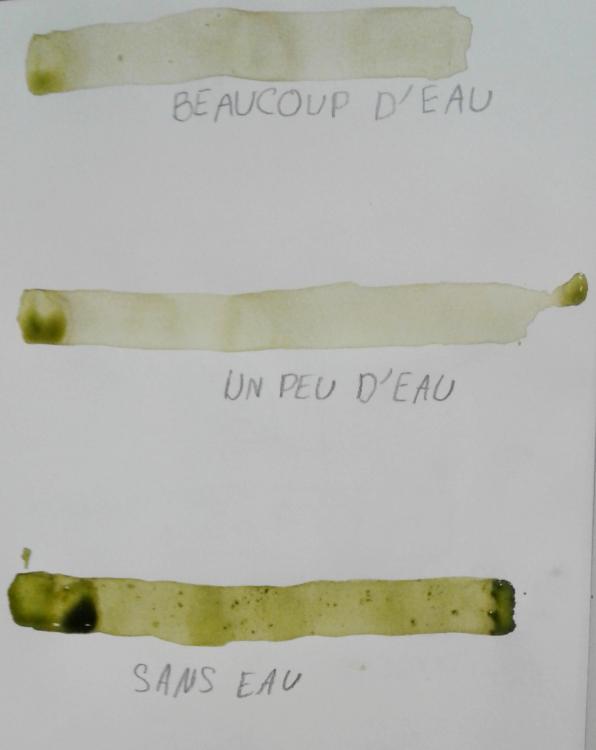 BEAUCOUP D'EAU
UN PEU D'EAU
SANS EAU